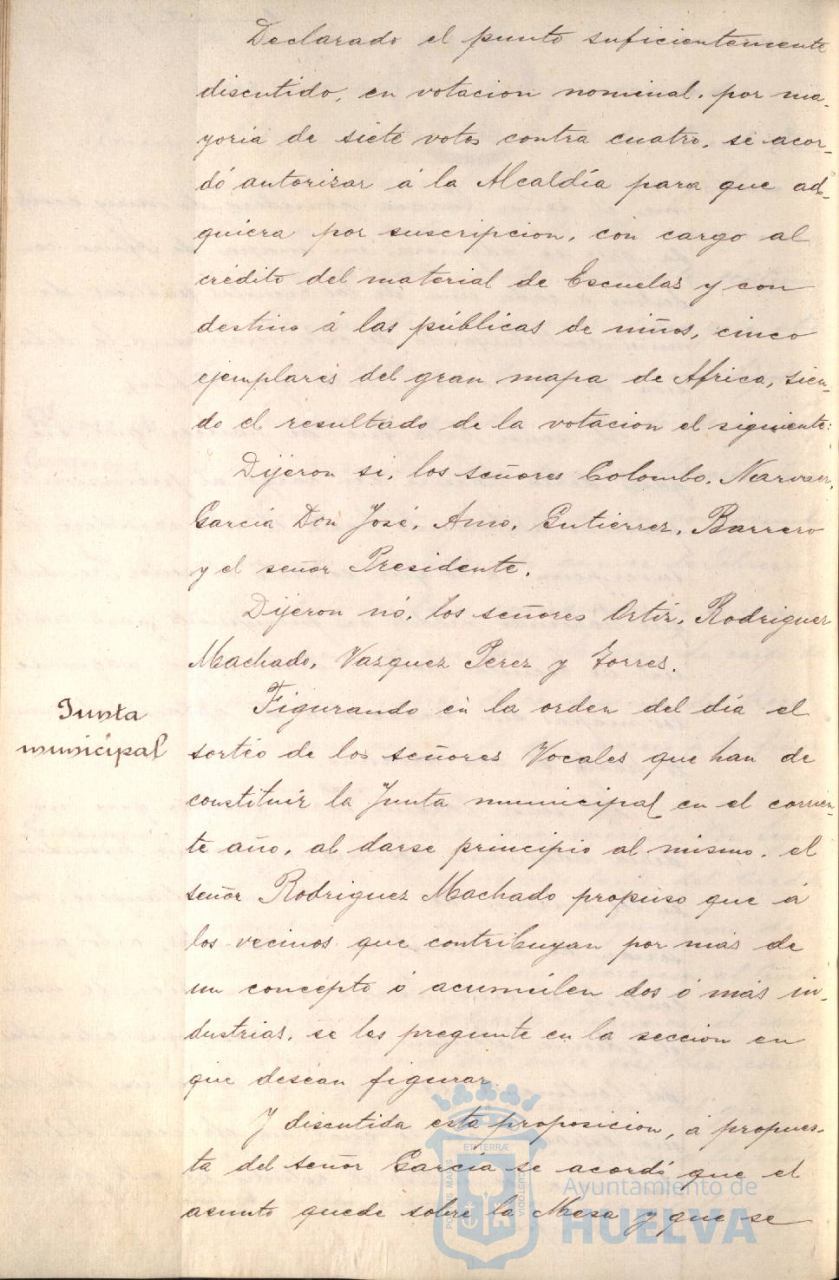 Declarado el punto suficientemente
discutido, en votacion nominal, por ma-
yoría de siete votos contra cuatro, se acor-
dó autorizar á la Alcaldía para que ad-
quiera por suscripcion, con cargo al
crédito del material de Escuelas y con
destino á las públicas de niños, cinco
ejemplares del gran mapa de Africa, sien-
do el resultado de la votacion el siguiente:
Dijeron si, los señores Colombo, Narvaez,
García Don José, Amo, Gutierrez, Barrero
y el señor Presidente.
Dijeron nó, los señores Ortiz, Rodriguez
Machado, Vazquez Perez y Torres.
Junta
municipal
Figurando en la orden del día el
sorteo de los señores Vocales que han de
constituir la Junta municipal en el corrien-
te año, al darse principio al mismo, el
señor Rodriguez Machado propuso que á
los vecinos que contribuyan por más de
un concepto ó acumúlen dos ó más in-
dustrias, se les pregunte en la seccion en
que desean figurar.
Y discutida esta proposicion, á propues-
ta del señor García se acordó que el
asunto quede sobre la Mesa y que se
PORTUS MARIS
ET TERRÆ
CUSTODIA
Ayuntamiento de
HUELVA